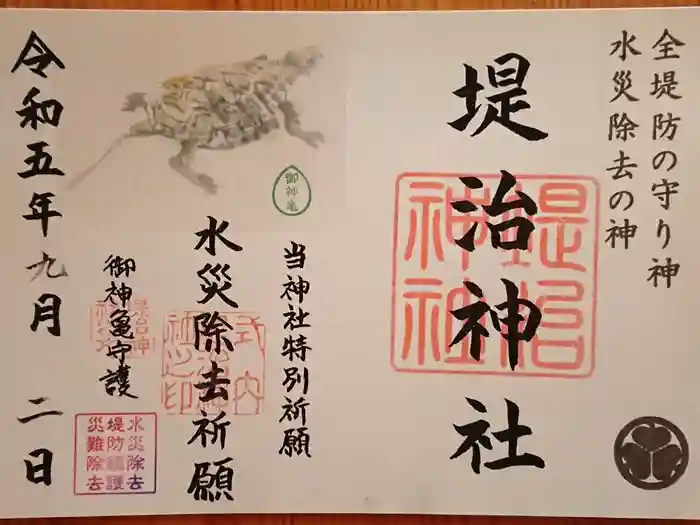 全堤防の守り神
水災除去の神
堤治神社
当神社特別祈願
水災除去祈願
御神亀
御神亀守護
水災除去
堤防鎮護
災難除去
令和五年九月二日